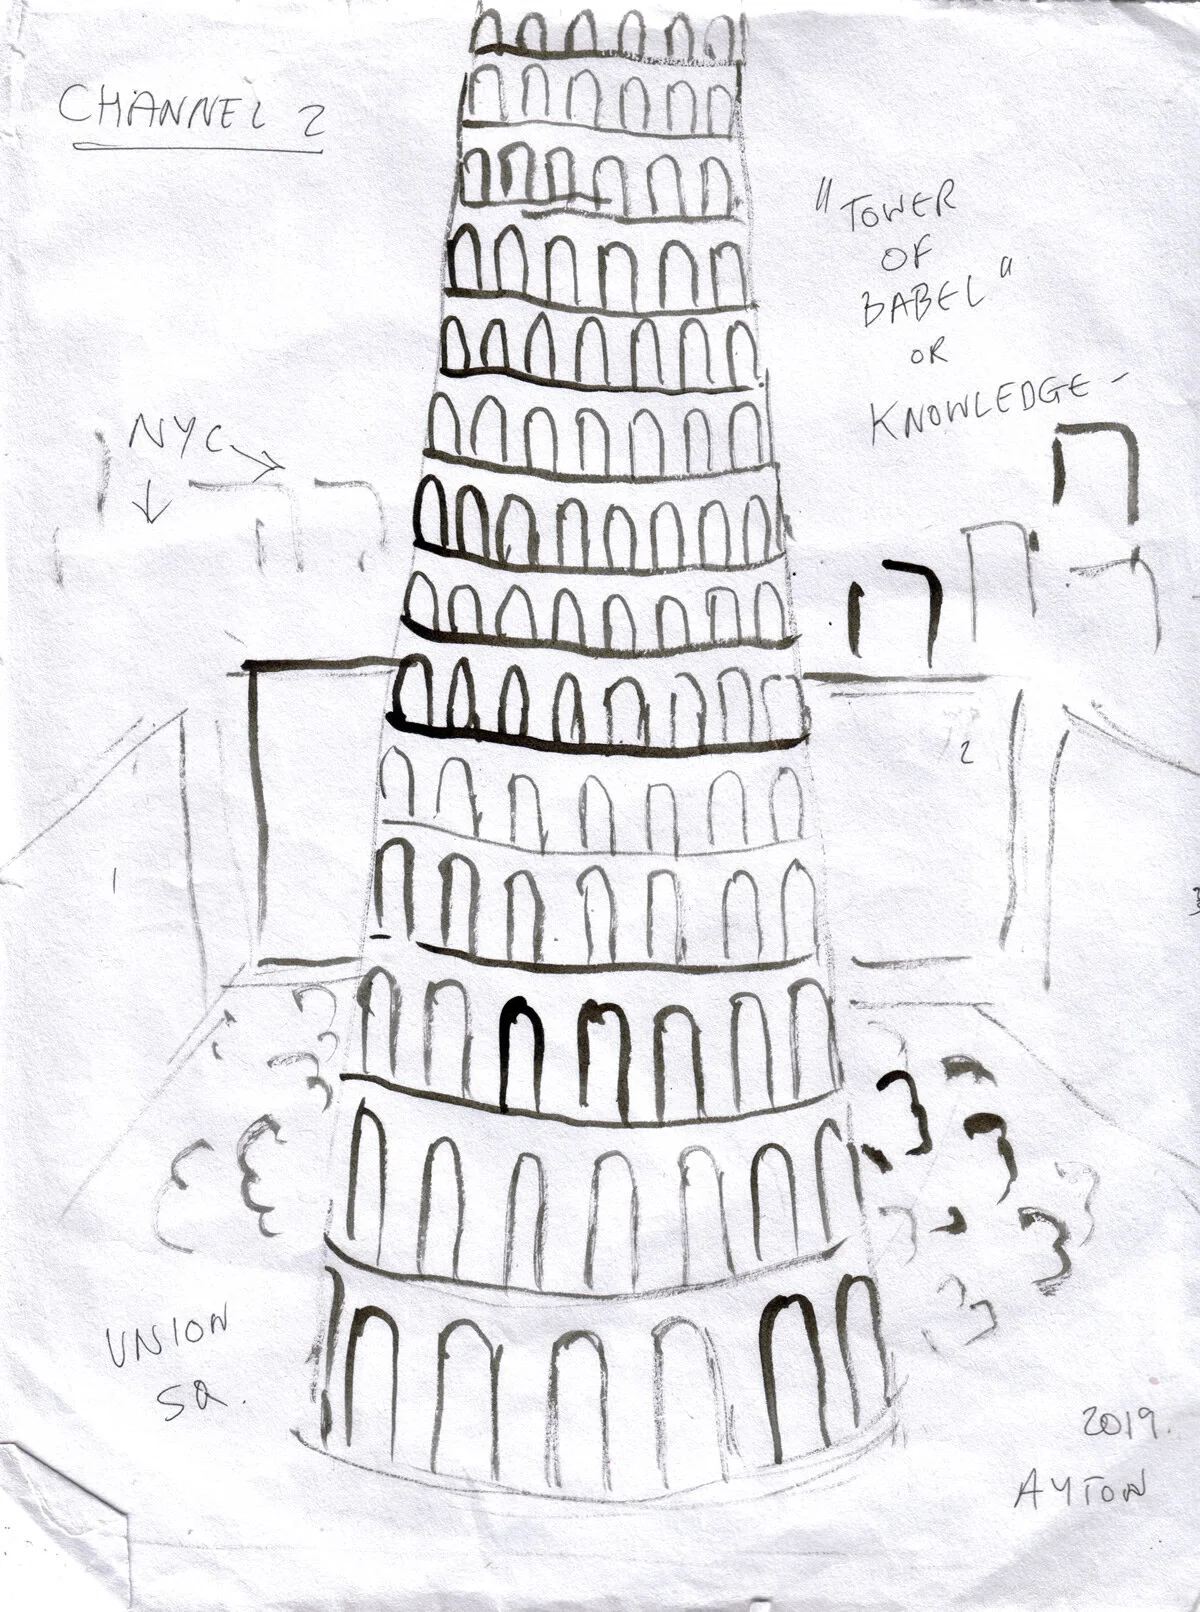 CHANNEL 2
"TOWER
OF
BABEL"
OR
KNOWLEDGE -
NYC
2
1
UNION
SQ.
2019.
AYTON